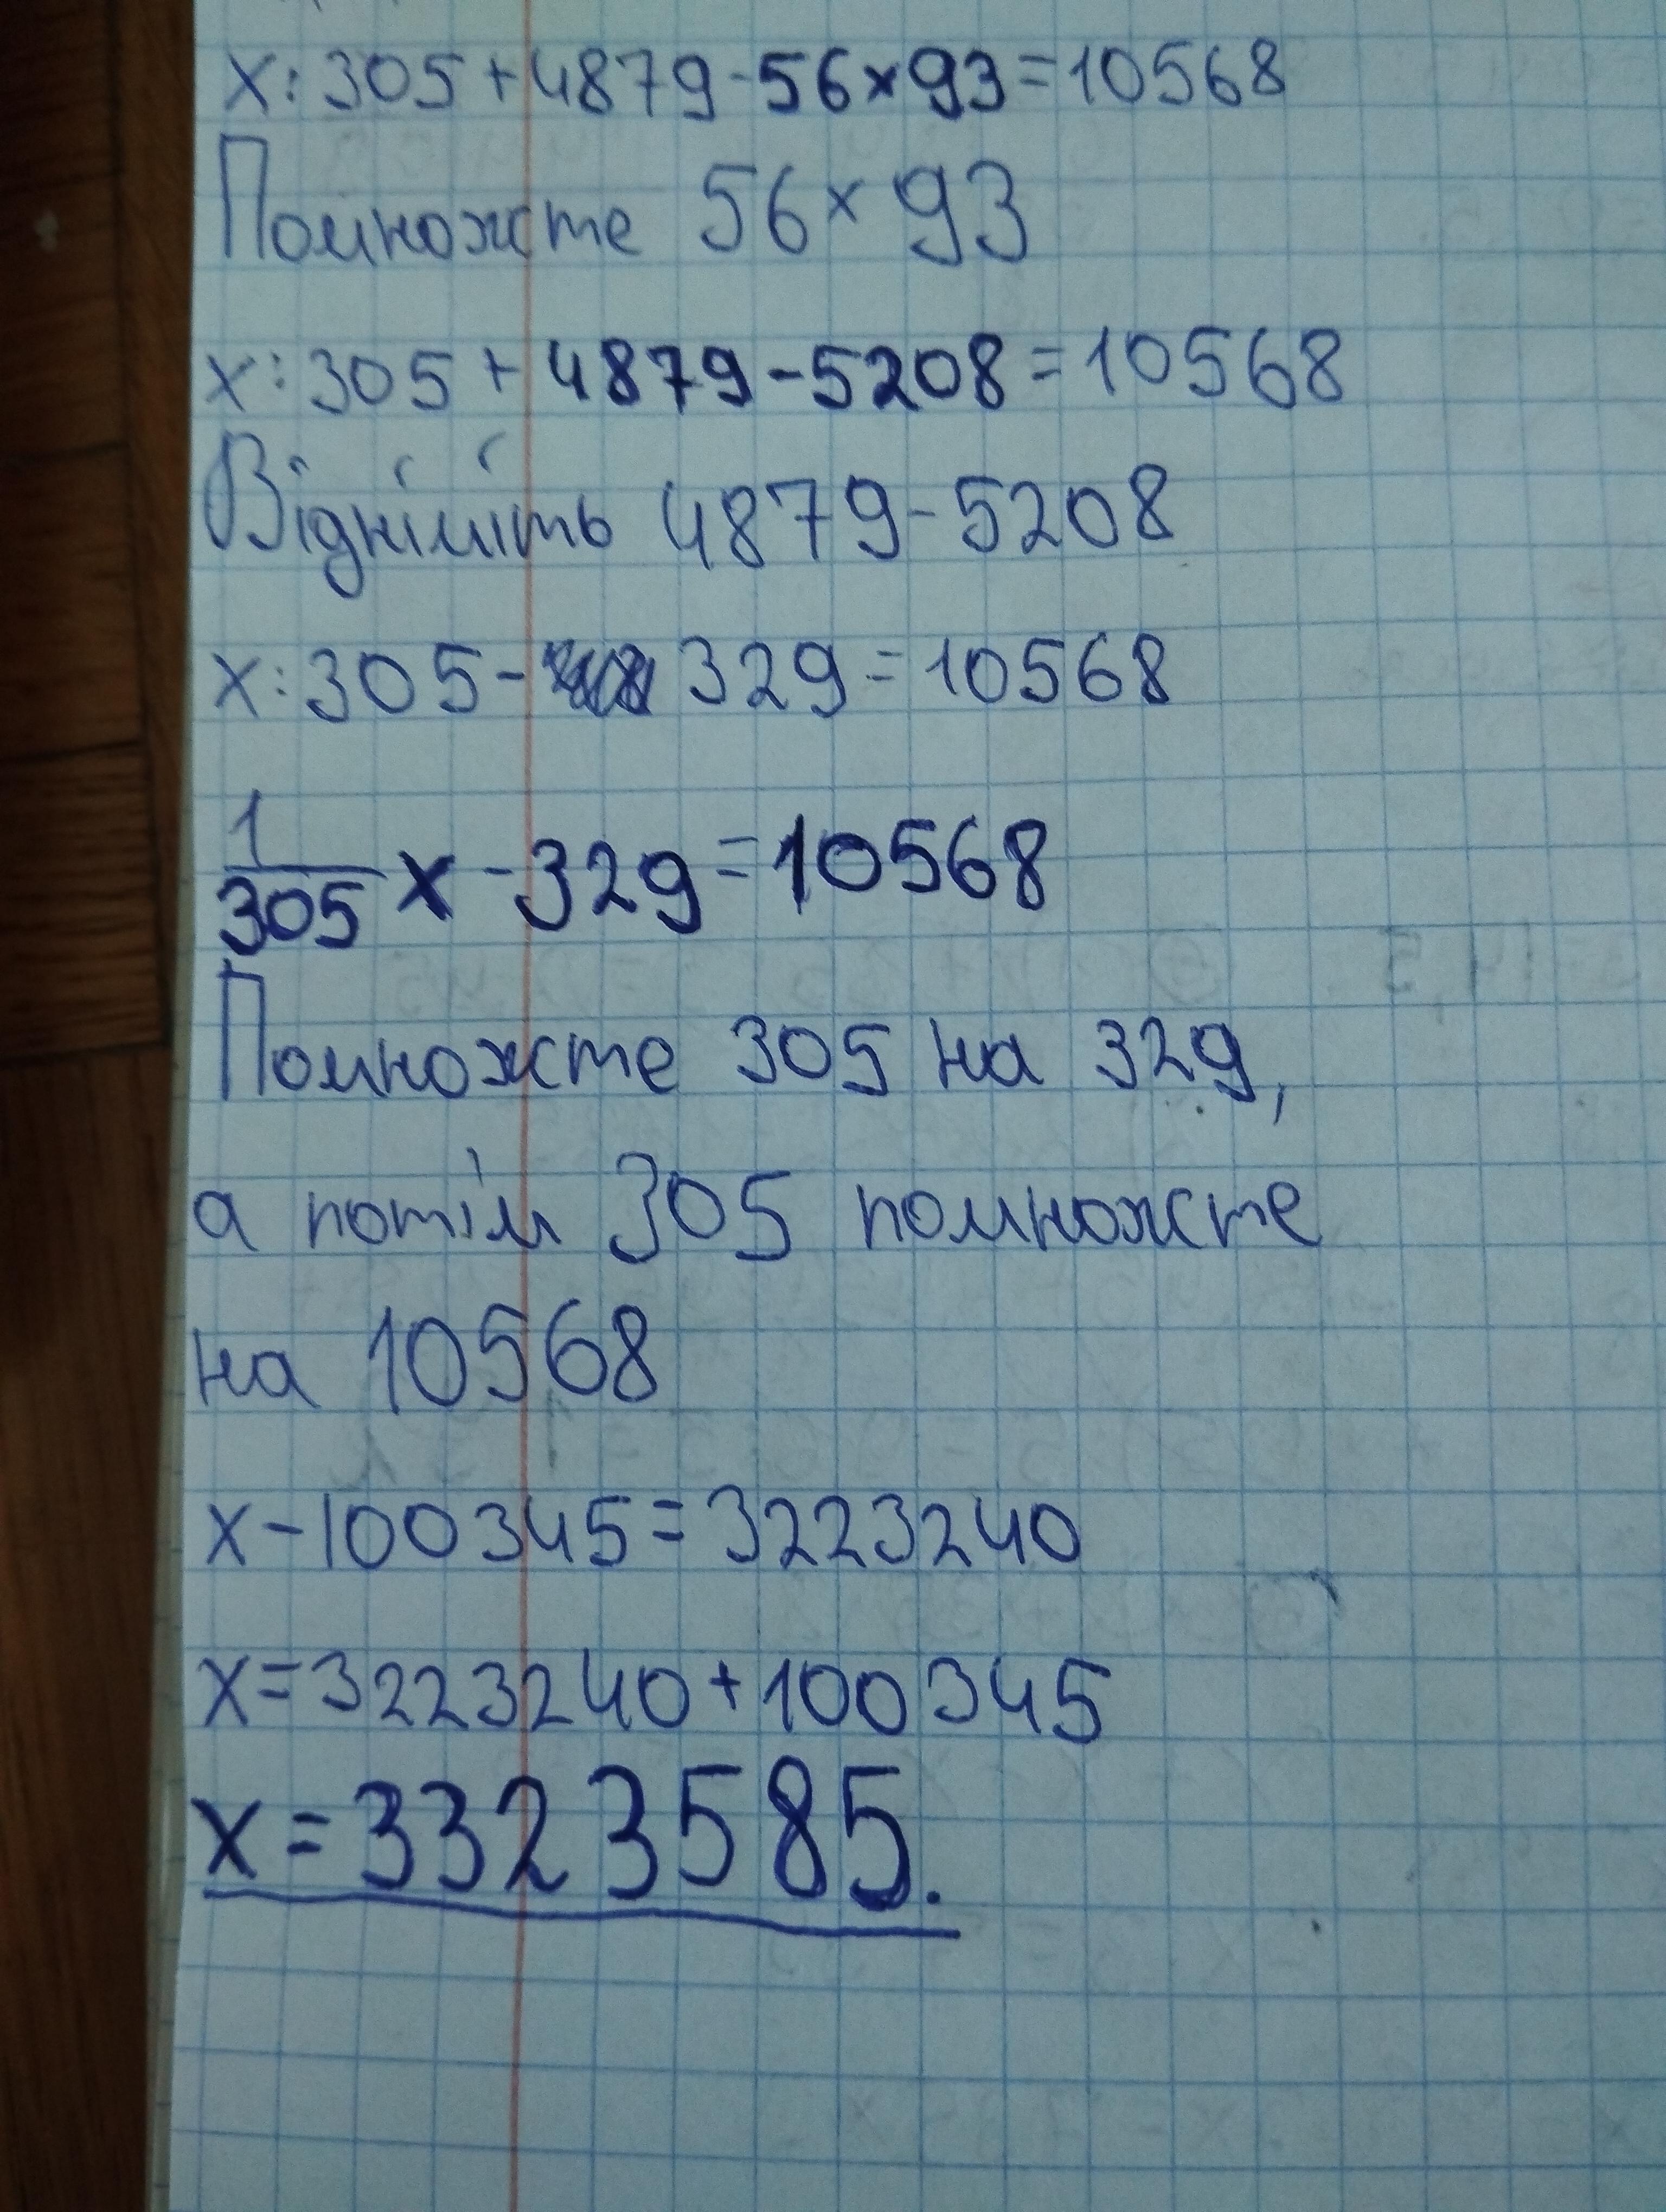 x:305+4879-56×93=10568
Помножте 56×93
x:305+4879-5208=10568
Відніміть 4879-5208
x:305-329=10568
1/305 x-329=10568
Помножте 305 на 329,
а потім 305 помножте
на 10568
x-100345=3223240
x=3223240+100345
x=3323585.